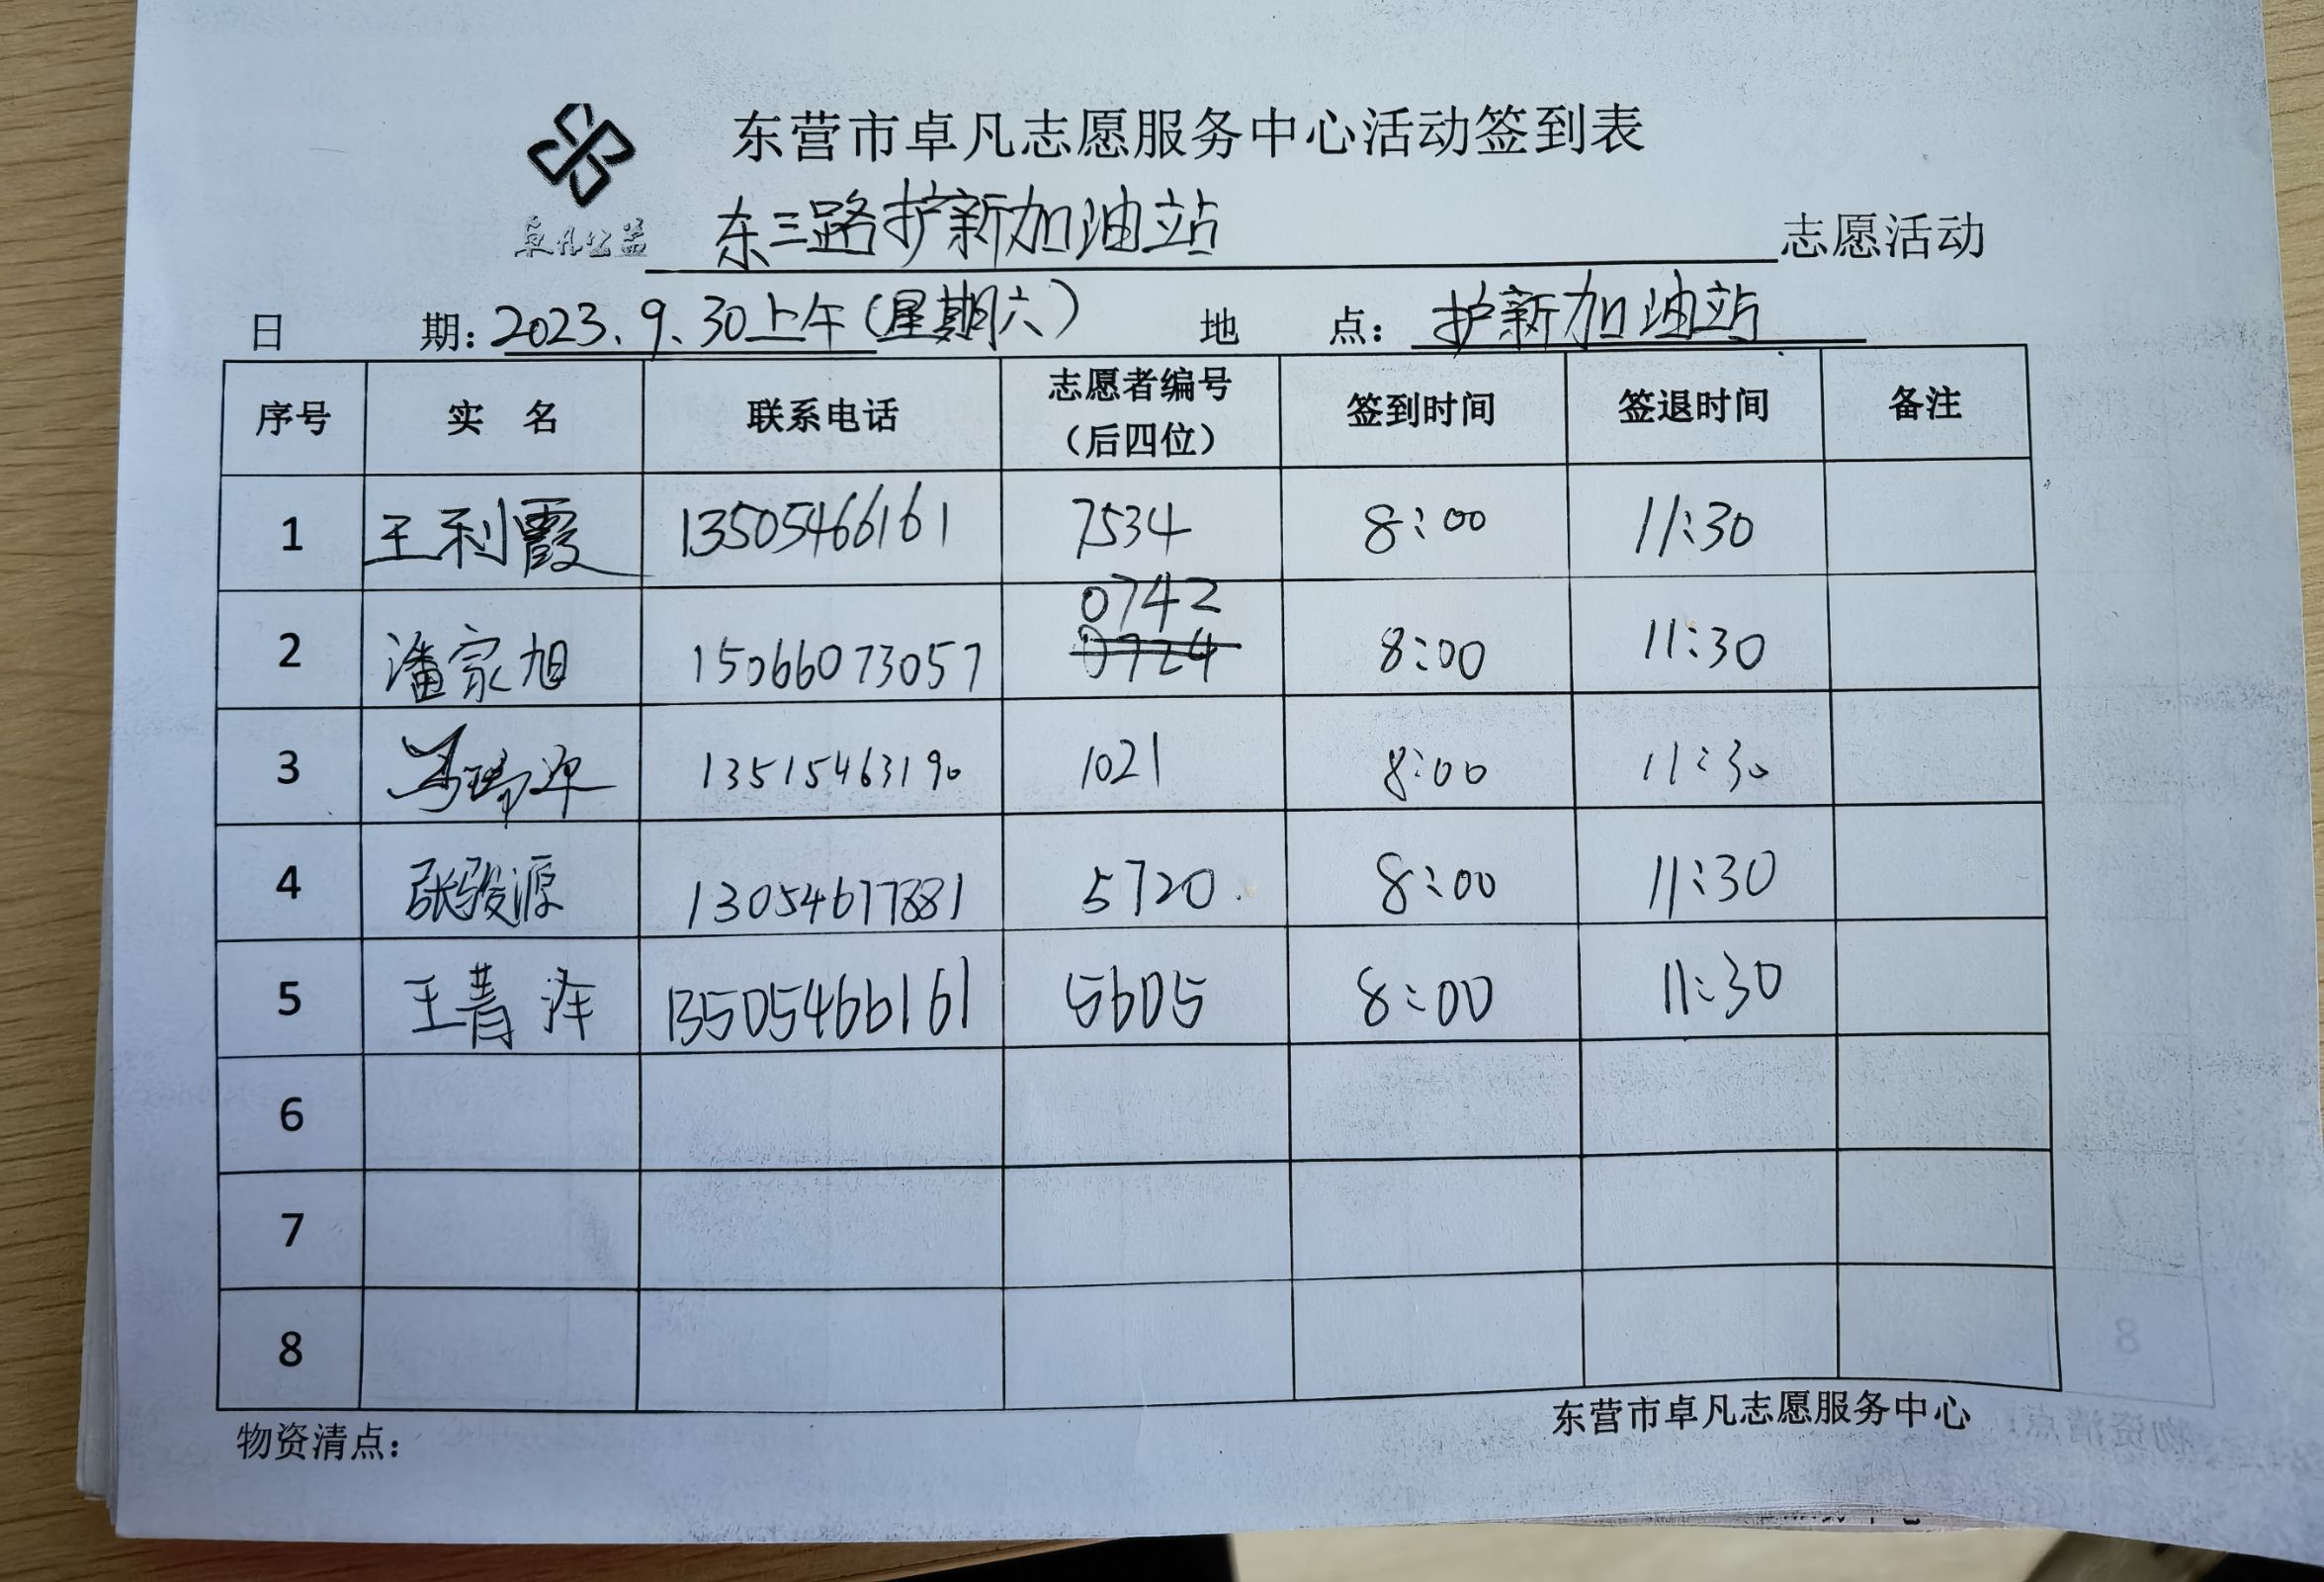 东营市卓凡志愿服务中心活动签到表
卓凡公益
东三路护新加油站 志愿活动
日 期: 2023.9.30上午(星期六) 地 点: 护新加油站
序号 实 名 联系电话 志愿者编号（后四位） 签到时间 签退时间 备注
1 王利霞 13505466161 7534 8:00 11:30
2 潘家旭 15066073057 0742 0724 8:00 11:30
3 13515463190 1021 8:00 11:30
4 张骏源 13054677881 5720 8:00 11:30
5 王菁泽 13505466161 5605 8:00 11:30
6
7
8
物资清点: 东营市卓凡志愿服务中心